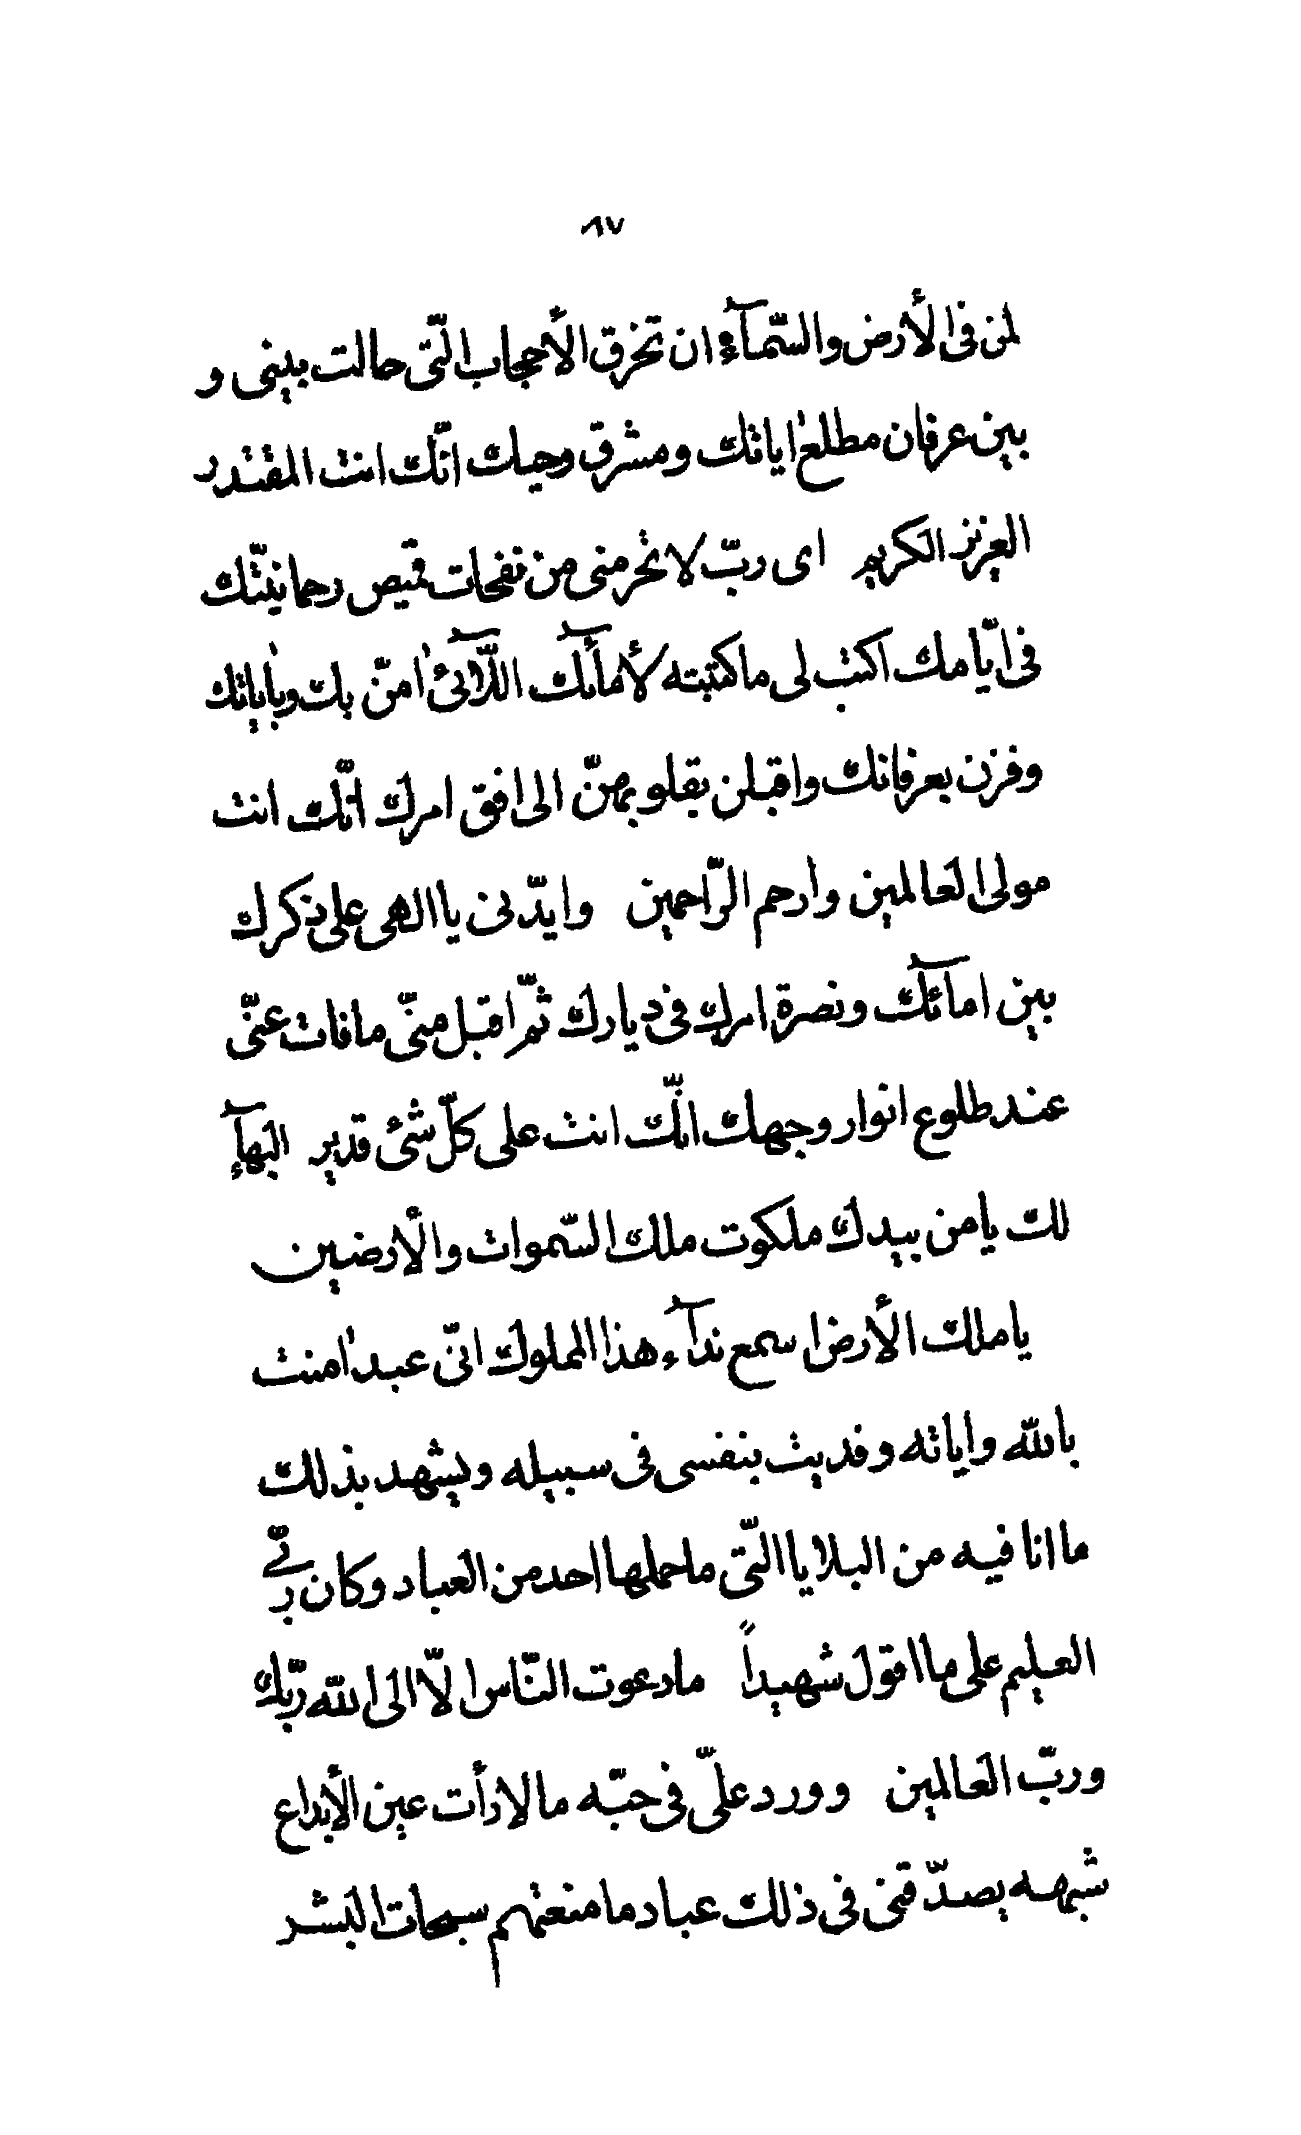 ٨٧
لمن فی الأرض والسّمآء ان تخرق الأحجاب الّتی حالت بینی و
بین عرفان مطلع اٰیاتك ومشرق وحیك انّك انت المقتدر
العزیز الکریم ای ربّ لا تحرمنی من نفحات قمیص رحمانیّتك
فی ایّامك اکتب لی ما کتبته لأمآئك اللّآئی اٰمنّ بك وباٰیاتك
وفزن بعرفانك واقبلن بقلوبهنّ الی افق امرك انّك انت
مولی العالمین وارحم الرّاحمین وایّدنی یا الهی علی ذکرك
بین امآئك ونصرة امرك فی دیارك ثمّ اقبل منّی ما فات عنّی
عند طلوع انوار وجهك انّك انت علی کلّ شیء قدیر البهآء
لك یا من بیدك ملکوت ملك السّموات والأرضین
یا ملك الأرض اسمع ندآء هذا المملوك انّی عبد اٰمنت
بالله وایاته وفدیت بنفسی فی سبیله ویشهد بذلك
ما انا فیه من البلایا الّتی ما حملها احد من العباد وکان ربّی
العلیم علی ما اقول شهیداً ما دعوت النّاس الّا الی الله ربّك
وربّ العالمین وورد علیّ فی حبّه ما لا رأت عین الأبداع
شبهه یصدّقنی فی ذلك عباد ما منعتهم سبحات البشر